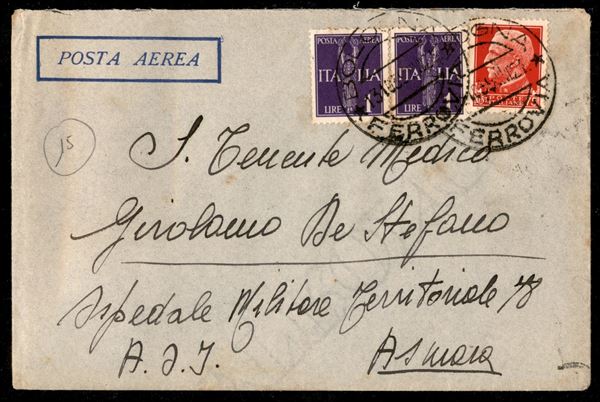 POSTA AEREA
POSTA AEREA
ITALIA
LIRE 1
POSTA AEREA
ITALIA
LIRE 1
BOLOGNA
FERROVIA
BOLOGNA
FERROVIA
15
S. Tenente Medico
Girolamo De Stefano
Ospedale Militare Territoriale 78
A.O.I. Asmara